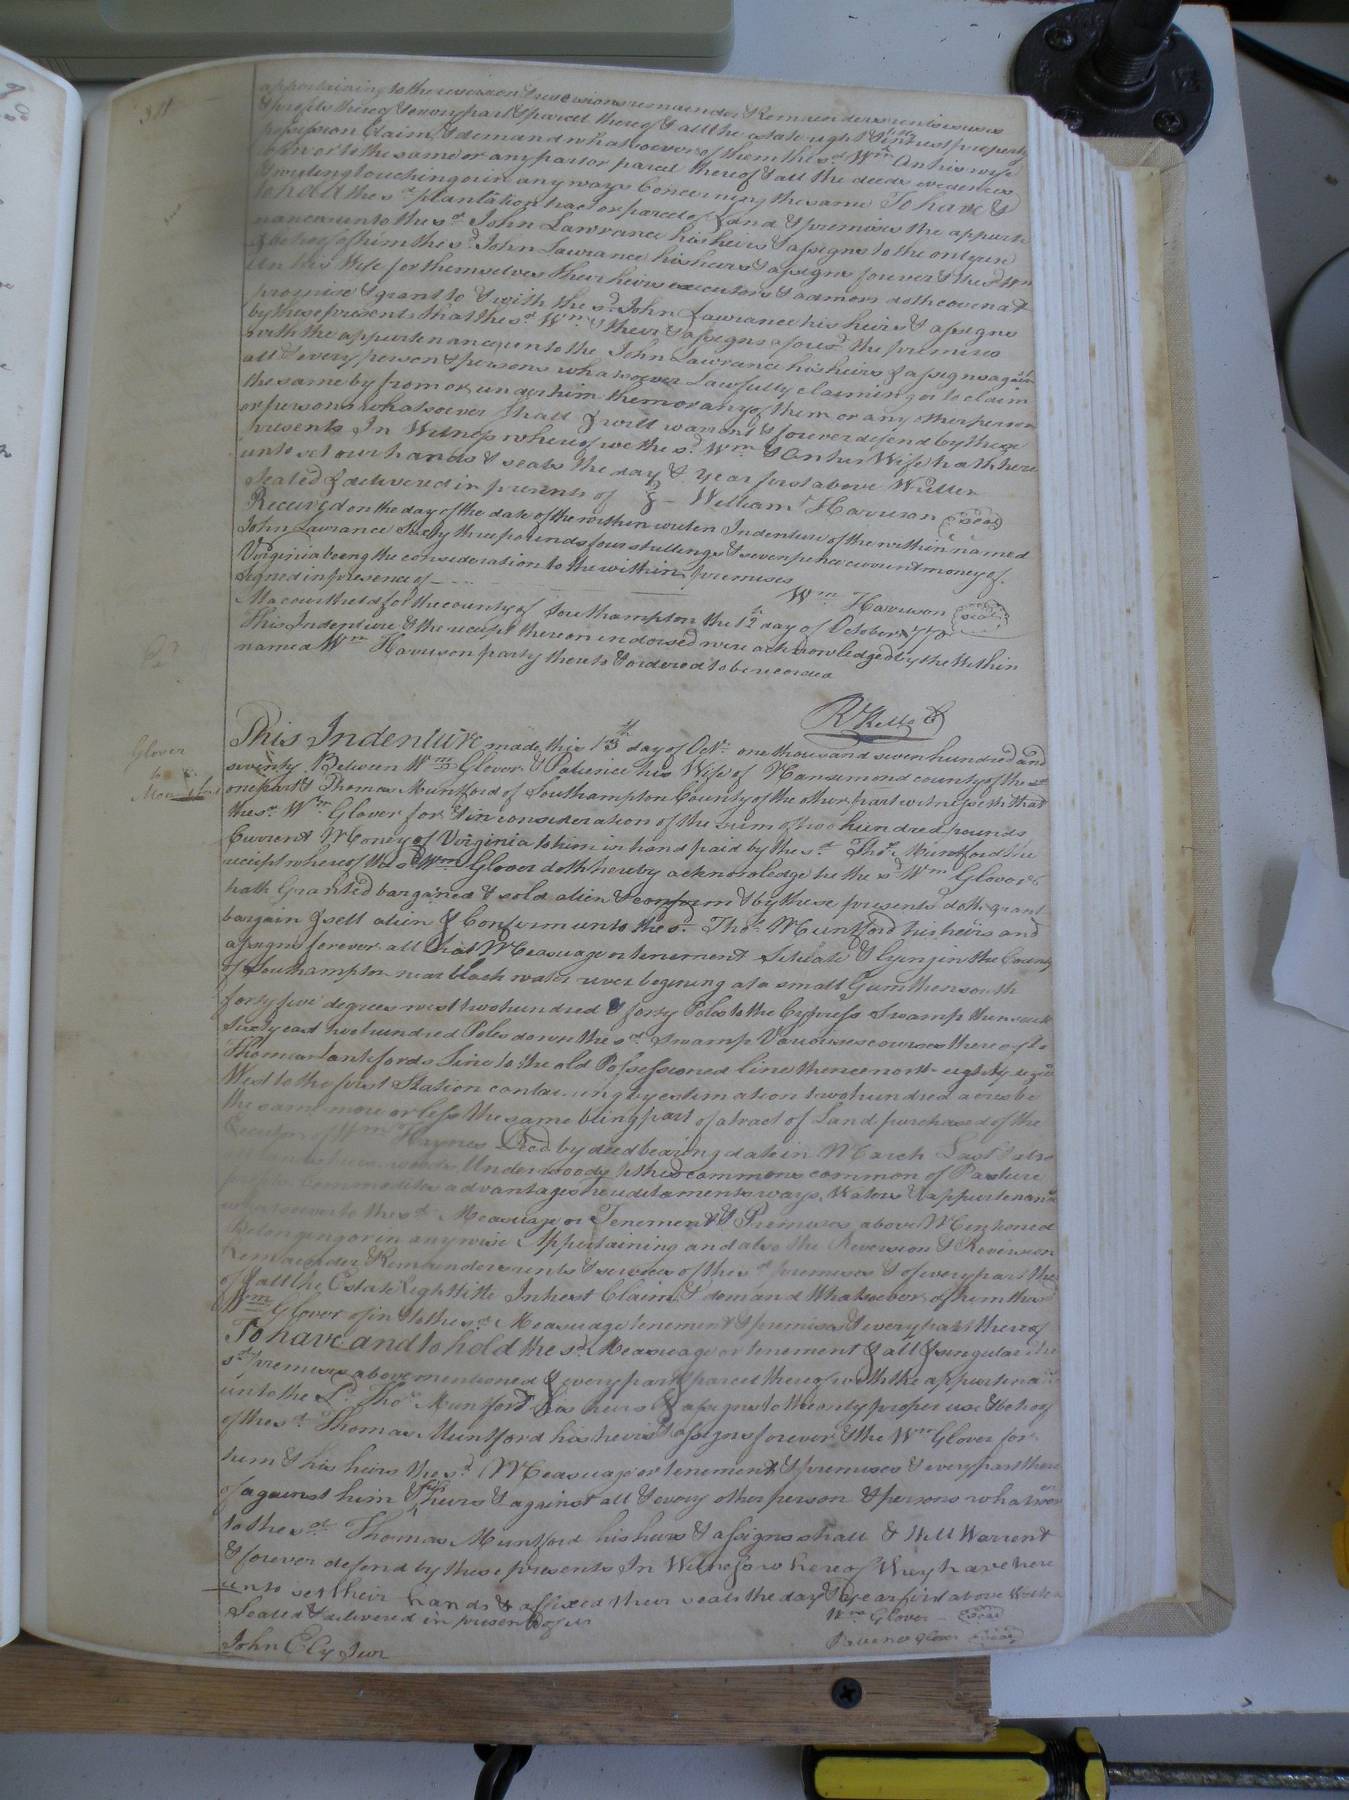 311
appertaining to the reversion & reversions remainder & Remainders rents issues
& profits thereof & every part & parcel thereof & all the estate right title & Intrust property
possession Claim & demand whatsoever of them the sd. Wm. An his wife
of in or to the same or any part or parcel thereof & all the deeds evidences
& writing touching or in any ways Concerning the same To have &
to hold the sd. plantation tract or parcel of Land & premises the appurte
nances unto the sd. John Lawrance his heirs & assigns to the only use
& behoof of him the sd. John Lawrance his heirs & assigns forever & the sd. Wm.
An his Wife for themselves their heirs executors & admors doth covenat
promise & grant to & with the sd. John Lawrance his heirs & assigns
by these presents that the sd. Wm. & their & assigns aforesd. the premises
with the appurtenances unto the John Lawrance his heirs & assigns against
all & every person & persons whatsoever Lawfully claiming or to claim
the same by from or under him them or any of them or any other person
or persons whatsoever shall & will warrant & forever defend by these
presents In Witness whereof we the sd. Wm. & An his Wife hath here
unto set our hands & seals the day & year first above Written
Sealed & delivered in presents of } William Harrison seal
Received on the day of the date of the within writen Indenture of the within named
John Lawrance Sixty three pounds four shillings & seven pence current money of
Virginia being the consideration to the within premises
Signed in presence of Wm. Harrison seal
At a court held for the county of Southampton the 12th day of October 1770
This Indenture & the receipt thereon indorsed were acknowledged by the Within
named Wm. Harrison party thereto & ordered to be recorded
R Kello C
Glover
to
This Indenture made this 13th day of Octr. one thousand seven hundred and
seventy Between Wm. Glover & Patience his Wife of Nansemond county of the
one part & Thomas Muntford of Southampton County of the other part witnesseth that
the sd. Wm. Glover for & in consideration of the sum of two hundred pounds
Current Money of Virginia to him in hand paid by the sd. Thos. Muntford the
receipt whereof the sd. Wm. Glover doth hereby acknowledge he the sd. Wm. Glover
hath Granted bargained & sold alien & confirm & by these presents doth grant
bargain & sell alien & Confirm unto the sd. Thos. Muntford his heirs and
assigns forever all that Measuage or tenement Situate & lying in the County
of Southampton near black water river begining at a small Gum then south
forty five degrees west two hundred & forty Poles to the Cypress Swamp then south
sixty east two hundred Poles down the sd. Swamp Various courses thereof to
Thomas Lankfords Line to the old Possessioned line thence north eighty degrees
West to the first Station containing by estimation two hundred acres be
the same more or less the same being part of a tract of Land purchased of the
Executors of Wm. Haynes Decd by deed bearing date in March Last & also
woods Underwoods commons common of Pasture
profits Commodities advantages hereditaments ways, Waters & appurtenances
whatsoever to the sd. Measuage or Tenement & Premises above Mentioned
Belonging or in any wise Appertaining and also the Reversion & Reversions
Remainder & Remainders rents & services of the sd. premises & of every part there
of & all the Estate Right title Intrest Claim & demand Whatsoever of him the sd
Wm. Glover of in & to the sd. Measuage tenement & premises & every part thereof
To have and to hold the sd. Measuage or tenement & all & singular the
sd. Premises above mentioned & every part & parcel thereof with the appurtenances
unto the sd. Thos. Muntford his heirs & assigns to the only proper use & behoof
of the sd. Thomas Muntford his heirs & assigns forever & the Wm. Glover for
him & his heirs the sd. Measuage or tenement & premises & every part there
of against him & his heirs & against all & every other person & persons whatsoever
to the sd. Thomas Muntford his heirs & assigns shall & Will Warrent
& forever defend by these presents In Witness whereof they have here
unto set their hands & affixed their seals the day & year first above Written
Sealed & delivered in presents of us Wm. Glover seal
John Ely Junr Patience Glover seal